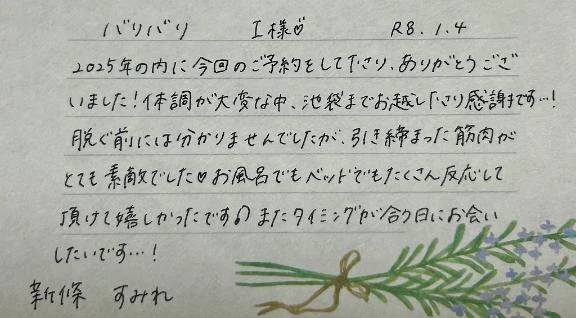 バリバリ I様♡ R8.1.4
2025年の内に今回のご予約をして下さり、ありがとうござ
いました！体調が大変な中、池袋までお越し下さり感謝です…！
脱ぐ前には分かりませんでしたが、引き締まった筋肉が
とても素敵でした♡お風呂でもベッドでもたくさん反応して
頂けて嬉しかったです♪またタイミングが合う日にお会い
したいです…！
新條 すみれ